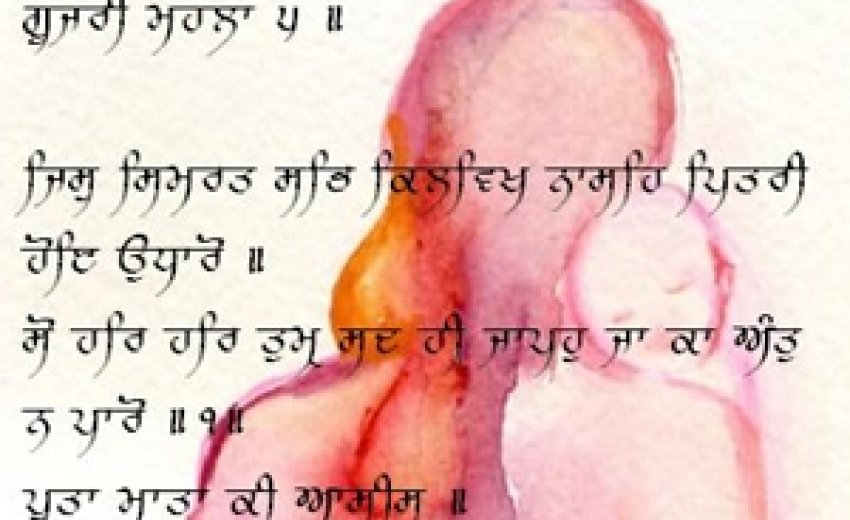 ਗੂਜਰੀ ਮਹਲਾ ੫ ॥
ਜਿਸੁ ਸਿਮਰਤ ਸਭਿ ਕਿਲਵਿਖ ਨਾਸਹਿ ਪਿਤਰੀ
ਹੋਇ ਉਧਾਰੋ ॥
ਸੋ ਹਰਿ ਹਰਿ ਤੁਮ੍ਹ੍ਹ ਸਦ ਹੀ ਜਾਪਹੁ ਜਾ ਕਾ ਅੰਤੁ
ਨ ਪਾਰੋ ॥੧॥
ਪੂਤਾ ਮਾਤਾ ਕੀ ਆਸੀਸ ॥